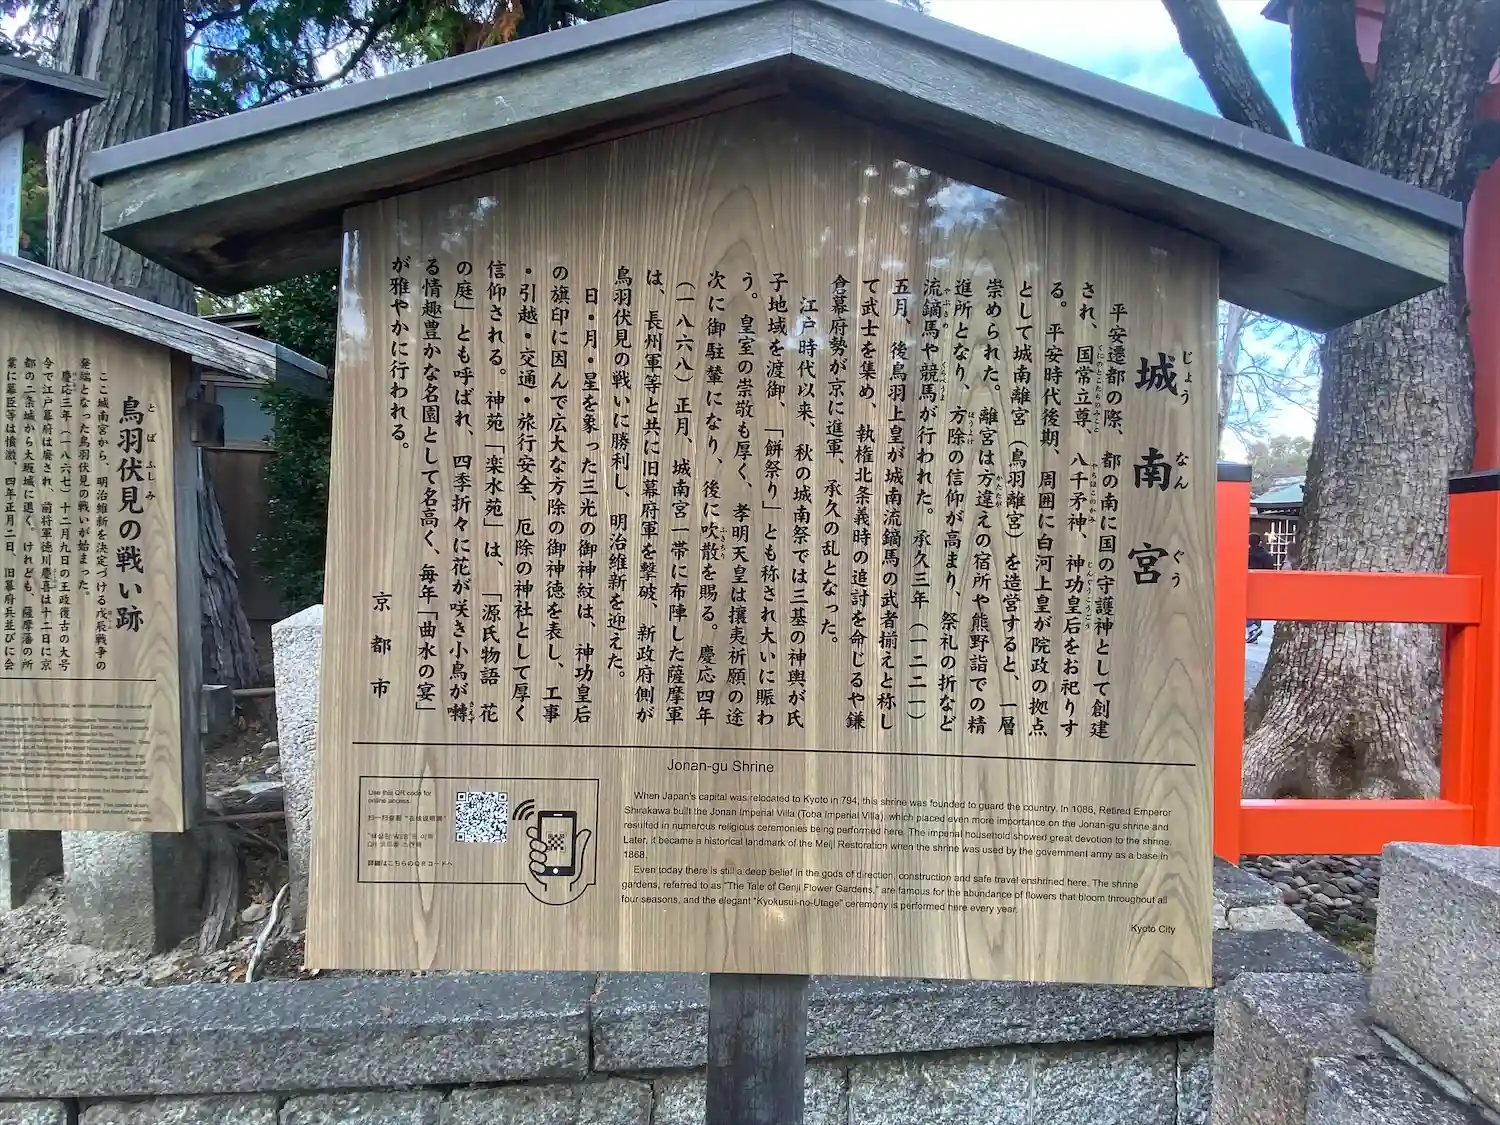 城南宮
じょうなんぐう
平安遷都の際、都の南に国の守護神として創建
され、国常立尊、八千矛神、神功皇后をお祀りす
る。平安時代後期、周囲に白河上皇が院政の拠点
として城南離宮(鳥羽離宮)を造営すると、一層
崇められた。離宮は方違えの宿所や熊野詣での精
進所となり、方除の信仰が高まり、祭礼の折など
流鏑馬や競馬が行われた。承久三年(一二二一)
五月、後鳥羽上皇が城南流鏑馬の武者揃えと称し
て武士を集め、執権北条義時の追討を命じるや鎌
倉幕府勢が京に進軍、承久の乱となった。
江戸時代以来、秋の城南祭では三基の神輿が氏
子地域を渡御、「餅祭り」とも称され大いに賑わ
う。皇室の崇敬も厚く、孝明天皇は攘夷祈願の途
次に御駐輦になり、後に吹散を賜る。慶応四年
(一八六八)正月、城南宮一帯に布陣した薩摩軍
は、長州軍等と共に旧幕府軍を撃破、新政府側が
鳥羽伏見の戦いに勝利し、明治維新を迎えた。
日・月・星を象った三光の御神紋は、神功皇后
の旗印に因んで広大な方除の御神徳を表し、工事
・引越・交通・旅行安全、厄除の神社として厚く
信仰される。神苑「楽水苑」は、「源氏物語 花
の庭」とも呼ばれ、四季折々に花が咲き小鳥が囀
る情趣豊かな名園として名高く、毎年「曲水の宴」
が雅やかに行われる。
京都市
Jonan-gu Shrine
When Japan's capital was relocated to Kyoto in 794, this shrine was founded to guard the country. In 1086, Retired Emperor
Shirakawa built the Jonan Imperial Villa (Toba Imperial Villa), which placed even more importance on the Jonan-gu shrine and
resulted in numerous religious ceremonies being performed here. The imperial household showed great devotion to the shrine.
Later, it became a historical landmark of the Meiji Restoration when the shrine was used by the government army as a base in
1868.
Even today there is still a deep belief in the gods of direction, construction and safe travel enshrined here. The shrine
gardens, referred to as "The Tale of Genji Flower Gardens," are famous for the abundance of flowers that bloom throughout all
four seasons, and the elegant "Kyokusui-no-Utage" ceremony is performed here every year.
Kyoto City
Use this QR code for
online access.
扫一扫查看"在线说明牌"
詳細はこちらのQRコードへ
鳥羽伏見の戦い跡
とばふしみ
ここ城南宮から、明治維新を決定づける戊辰戦争の
発端となった鳥羽伏見の戦いが始まった。
慶応三年(一八六七)十二月九日の王政復古の大号
令で江戸幕府は廃され、前将軍徳川慶喜は十二日に京
都の二条城から大坂城に退く。けれども、薩摩藩の所
業に幕臣等は憤激、四年正月二日、旧幕府兵並びに会